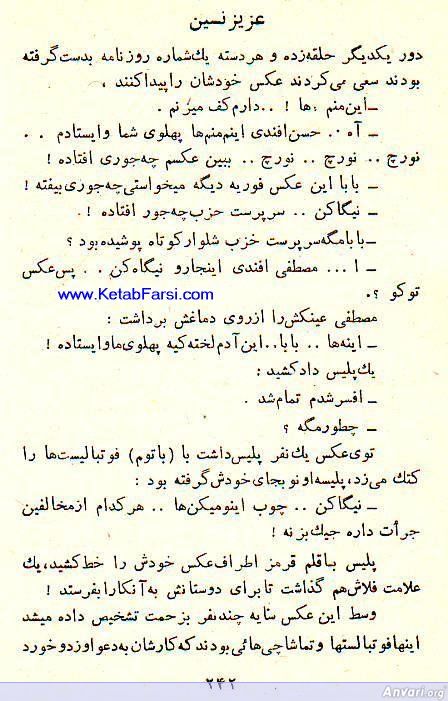 عزیز نسین
دور یکدیگر حلقه‌زده و هر دسته یك‌شماره روزنامه بدست‌گرفته
بودند سعی می‌کردند عکس خودشان را پیدا کنند ،
ـ این منم ، ها ! . . دارم کف میزنم .
ـ آه .. حسن‌افندی اینم منم‌ها پهلوی شما وایستادم . .
نورچ .. نورچ .. نورچ .. ببین عکسم چه‌جوری افتاده !
ـ بابا این عکس فوریه دیگه میخواستی‌چه‌جوری بیفته !
ـ نیگاکن .. سرپرست حزب‌چه‌جور افتاده !
ـ بابامگه سرپرست حزب شلوار کوتاه پوشیده بود ؟
ـ ا ... مصطفی افندی اینجارو نیگاه‌کن . . پس‌عکس
توکو ؟.
www.KetabFarsi.com
مصطفی عینکش‌را ازروی دماغش برداشت :
ـ اینه‌ها .. بابا..این‌آدم‌لخته‌کیه پهلوی‌ما وایستاده !
یك‌پلیس دادکشید :
ـ افسرشدم تمام‌شد .
ـ چطورمگه ؟
توی‌عکس یك‌نفر پلیس‌داشت با (باتوم) فوتبالیست‌ها را
کتك می‌زد، پلیسه‌اونو بجای خودش‌گرفته بود :
ـ نیگاکن .. چوب اینومیکن‌ها .. هرکدام ازمخالفین
جرأت داره جیك بزنه !
پلیس باقلم قرمز اطراف‌عکس خودش را خط‌کشید، یك
علامت فلاش‌هم گذاشت تا برای دوستانش به‌آنکارا بفرستد !
وسط این‌عکس سایه چندنفر بزحمت تشخیص داده میشد
اینهافوتبالستها وتماشاچی‌هائی بودند که‌کارشان به‌دعوا وزدوخورد
۲۴۲
Anvari.org